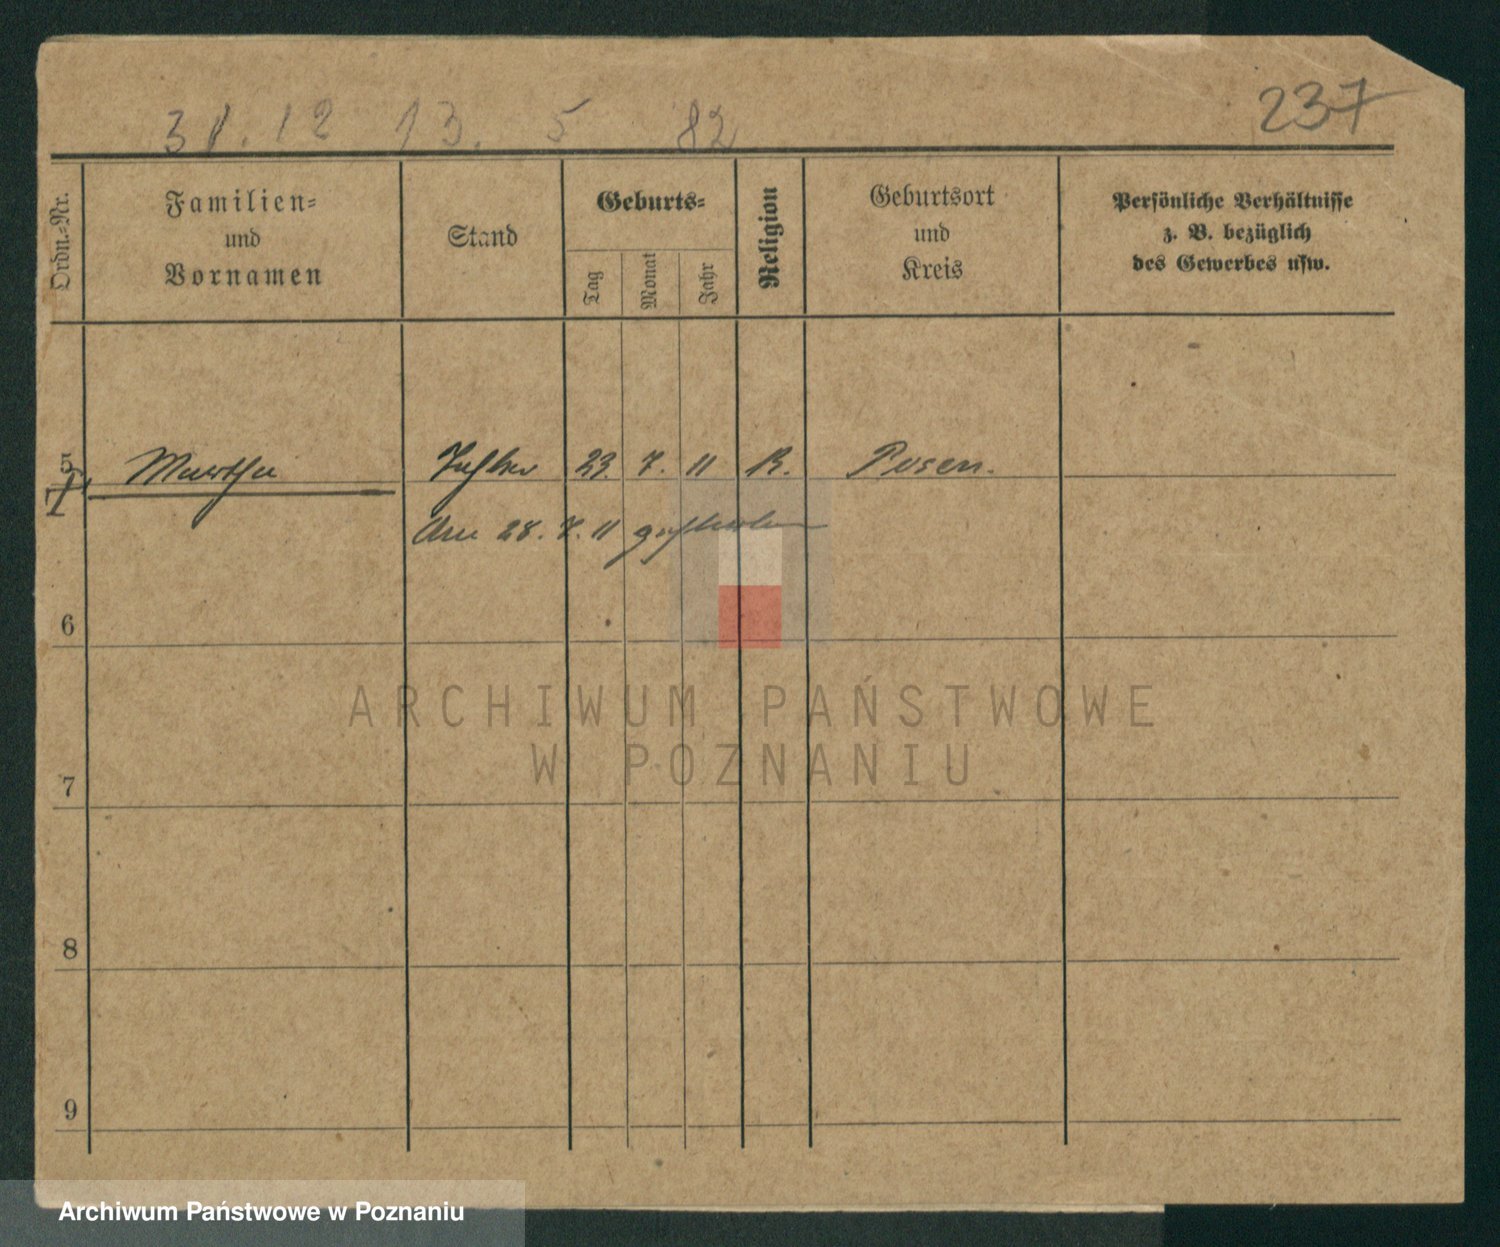 31.12 13. 5 82
237
Ordn.-Nr.
Familien-
und
Vornamen
Stand
Geburts-
Tag
Monat
Jahr
Religion
Geburtsort
und
Kreis
Persönliche Verhältnisse
z. B. bezüglich
des Gewerbes usw.
5 Martha Tochter 23. 7. 11 K. Posen.
Am 28. 7. 11 gestorben
6
7
8
9
ARCHIWUM PAŃSTWOWE
W POZNANIU
Archiwum Państwowe w Poznaniu